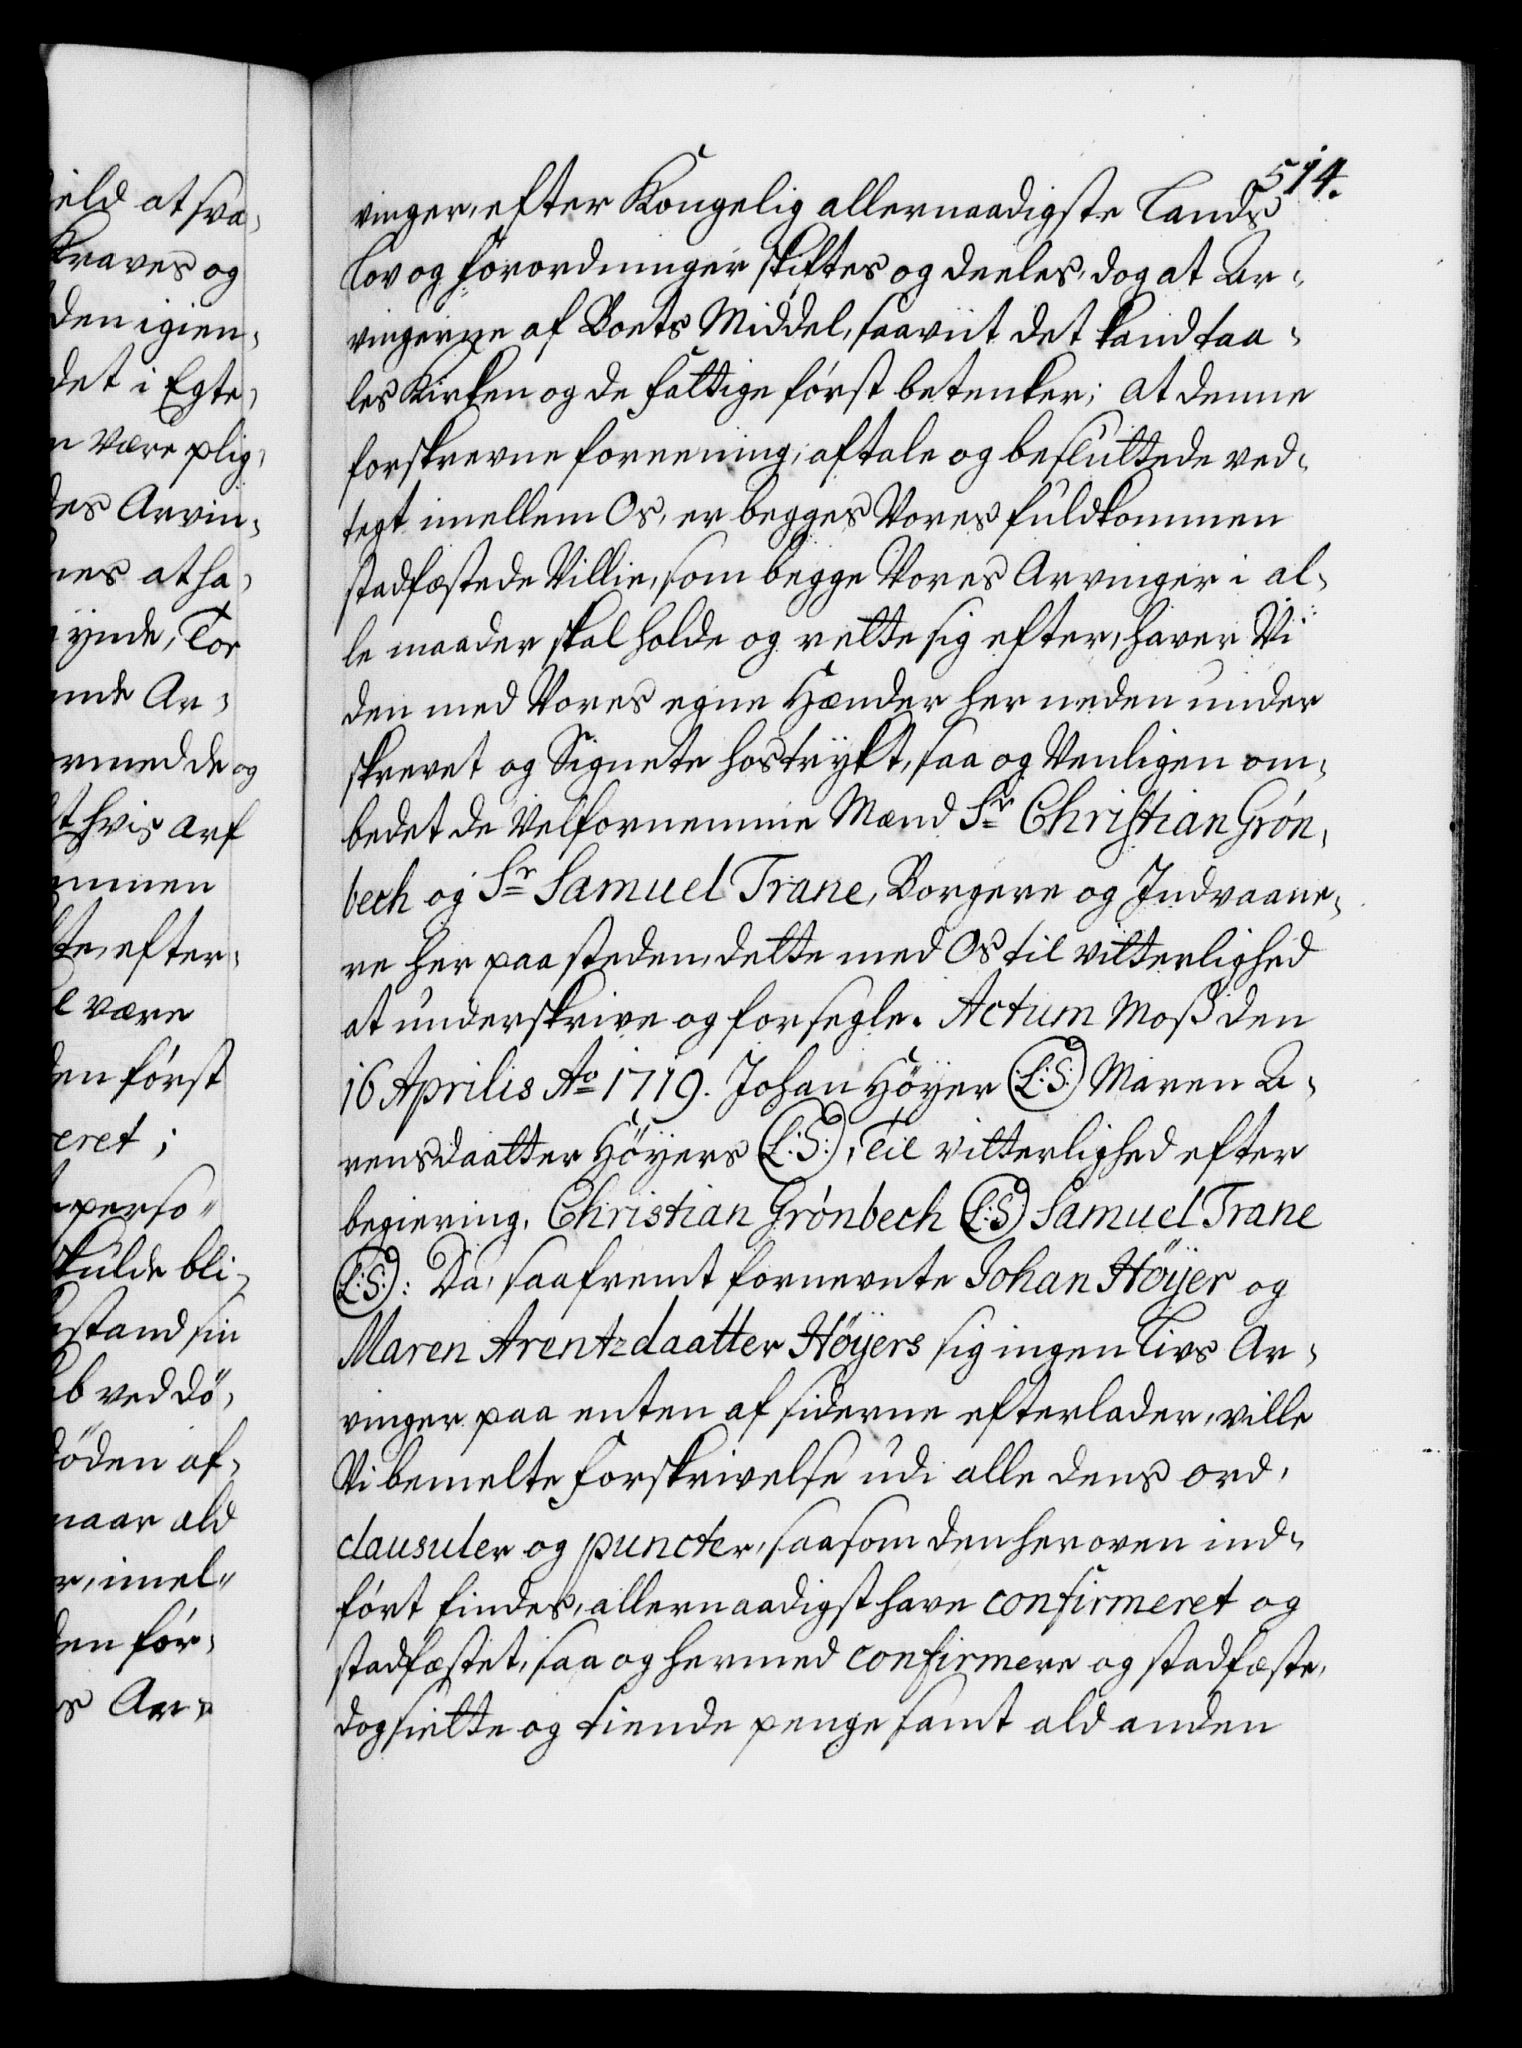 ield at sva,
Kraves og
den igien,
det i Egte,
n være plig,
des Arvin,
nes at ha,
ynde, Tor
nde Ar,
rmed de og
t hvis Arf
mmen
te, efter,
l være
den først
eret;
perso"
skulde bli,
stand sin
b ved dö,
döden af,
naar ald
r, imel"
den for,
s Ar,
514.
vinger, efter Kongelig allernaadigste Lands
Lov og Forordninger skiftes og deeles, dog at Ar,
vingerne af Boets Middel, saaviit det kand taa,
les Kirken og de fattige först betenker; at denne
forskrevne foreening, aftale og besluttede ved,
tegt imellem Os, er begges Vores fuldkommen
stadfæstede Villie, som begge Vores Arvinger i al,
le maader skal holde og rette sig efter, haver Vi
den med Vores egne Hænder her neden under
skrevet og Signete hostrykt, saa og Venligen om,
bedet de Velfornemme Mænd Sr Christian Grön,
bech og Sr Samuel Trane, Borgere og Indvaane,
re her paa steden, dette med Os til vitterlighed
at underskrive og forsegle. Actum Moss den
16 Aprilis Ao 1719. Johan Höyer (L:S:) Maren A,
rensdaatter Höyers (L:S:), Til vitterlighed efter
begiering, Christian Grönbech (L:S) Samuel Trane
(L:S:): Da, saafremt fornevnte Johan Höijer og
Maren Arentzdaatter Höijers sig ingen Livs Ar,
vinger paa enten af siderne efterlader, ville
Vi bemelte Forskrivelse udi alle dens ord,
clausuler og puncter, saasom den heroven ind,
fört findes, allernaadigst have confirmeret og
stadfæstet, saa og hermed confirmere og stadfæste,
dog siette og tiende penge samt ald anden